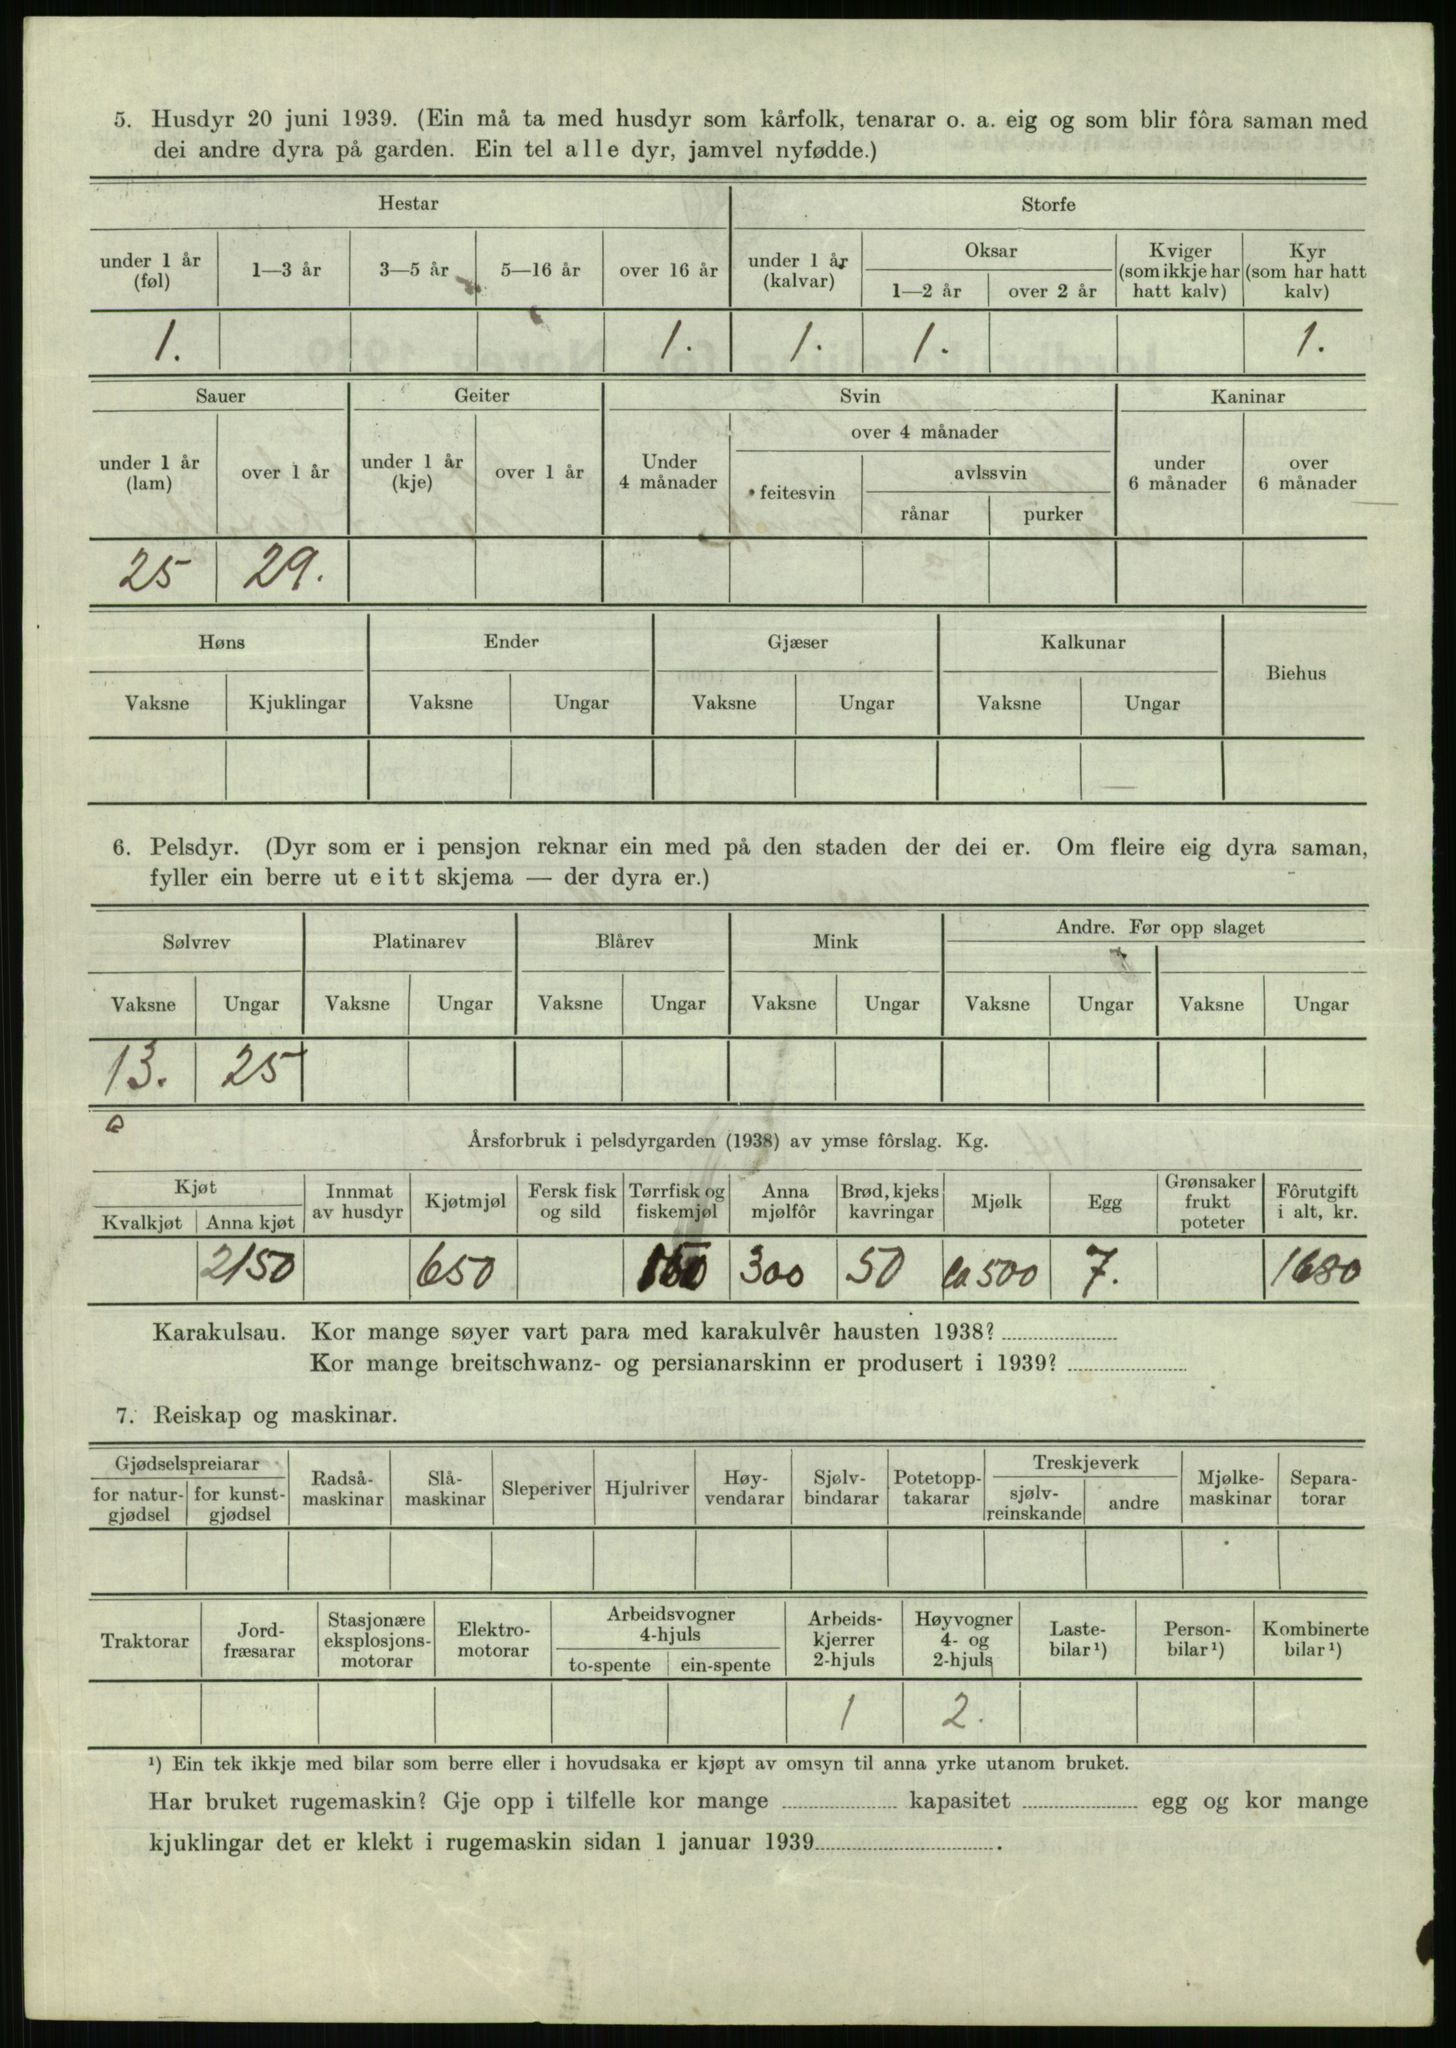 5. Husdyr 20 juni 1939. (Ein må ta med husdyr som kårfolk, tenarar o. a. eig og som blir fôra saman med
dei andre dyra på garden. Ein tel alle dyr, jamvel nyfødde.)
Hestar Storfe
under 1 år (føl) 1—3 år 3—5 år 5—16 år over 16 år under 1 år (kalvar) Oksar 1—2 år over 2 år Kviger (som ikkje har hatt kalv) Kyr (som har hatt kalv)
1. 1. 1. 1. 1.
Sauer Geiter Svin Kaninar
under 1 år (lam) over 1 år under 1 år (kje) over 1 år Under 4 månader over 4 månader feitesvin avlssvin rånar purker under 6 månader over 6 månader
25 29.
Høns Ender Gjæser Kalkunar Biehus
Vaksne Kjuklingar Vaksne Ungar Vaksne Ungar Vaksne Ungar
6. Pelsdyr. (Dyr som er i pensjon reknar ein med på den staden der dei er. Om fleire eig dyra saman,
fyller ein berre ut eitt skjema — der dyra er.)
Sølvrev Platinarev Blårev Mink Andre. Før opp slaget
Vaksne Ungar Vaksne Ungar Vaksne Ungar Vaksne Ungar Vaksne Ungar Vaksne Ungar
13. 25
Årsforbruk i pelsdyrgarden (1938) av ymse fôrslag. Kg.
Kjøt Kvalkjøt Anna kjøt Innmat av husdyr Kjøtmjøl Fersk fisk og sild Tørrfisk og fiskemjøl Anna mjølfôr Brød, kjeks kavringar Mjølk Egg Grønsaker frukt poteter Fôrutgift i alt, kr.
2150 650 300 50 ca 500 7. 1680
Karakulsau. Kor mange søyer vart para med karakulvêr hausten 1938?
Kor mange breitschwanz- og persianarskinn er produsert i 1939?
7. Reiskap og maskinar.
Gjødselspreiarar for natur-gjødsel for kunst-gjødsel Radså-maskinar Slå-maskinar Sleperiver Hjulriver Høy-vendarar Sjølv-bindarar Potetopp-takarar Treskjeverk sjølv-reinskande andre Mjølke-maskinar Separa-torar
Traktorar Jord-fræsarar Stasjonære eksplosjons-motorar Elektro-motorar Arbeidsvogner 4-hjuls to-spente ein-spente Arbeids-kjerrer 2-hjuls Høyvogner 4- og 2-hjuls Laste-bilar ¹) Person-bilar ¹) Kombinerte bilar ¹)
1 2.
¹) Ein tek ikkje med bilar som berre eller i hovudsaka er kjøpt av omsyn til anna yrke utanom bruket.
Har bruket rugemaskin? Gje opp i tilfelle kor mange kapasitet egg og kor mange
kjuklingar det er klekt i rugemaskin sidan 1 januar 1939 .